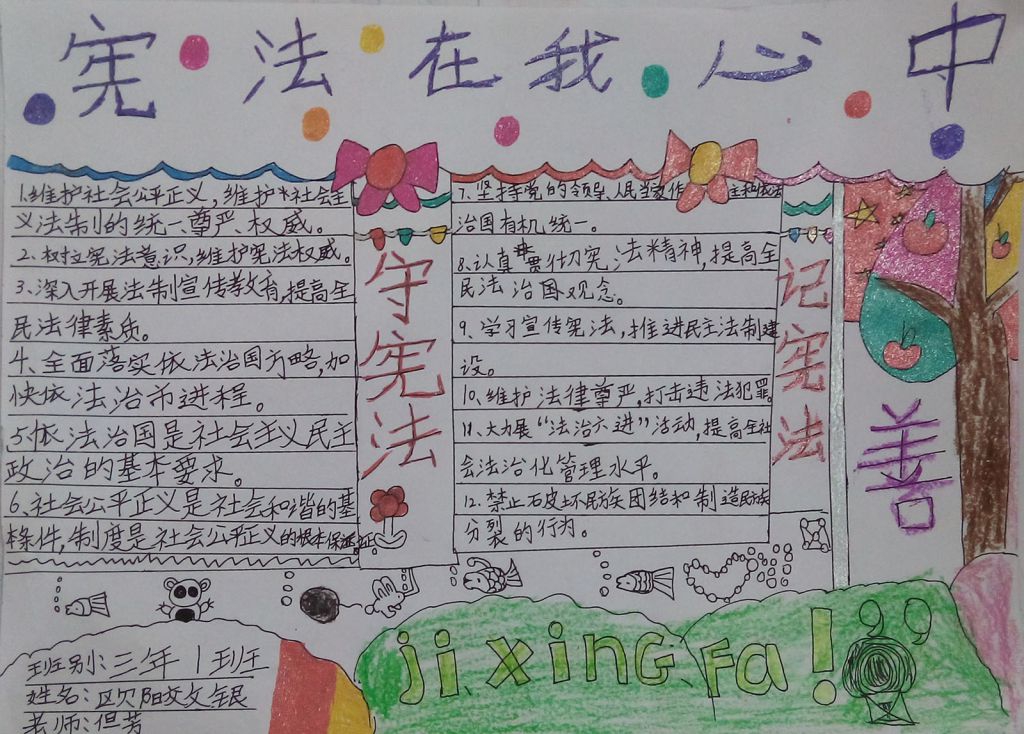 宪法在我心中
1.维护社会公平正义,维护社会主
义法制的统一尊严、权威。
2.树立宪法意识,维护宪法权威。
3.深入开展法制宣传教育,提高全
民法律素质。
4、全面落实依法治国方略,加
快依法治市进程。
5.依法治国是社会主义民主
政治的基本要求。
6.社会公平正义是社会和谐的基
本条件,制度是社会公平正义的根本保证。
守宪法
7.坚持党的领导、人民当家作主和依法
治国有机统一。
8.认真贯彻宪法精神,提高全
民法治国观念。
9.学习宣传宪法,推进民主法制建
设。
10.维护法律尊严,打击违法犯罪。
11.大力展“法治六进”活动,提高全社
会法治化管理水平。
12.禁止破坏民族团结和制造民族
分裂的行为。
记宪法
善
班别:三年1班
姓名:欧阳文银
老师:但芳
ji xing Fa!